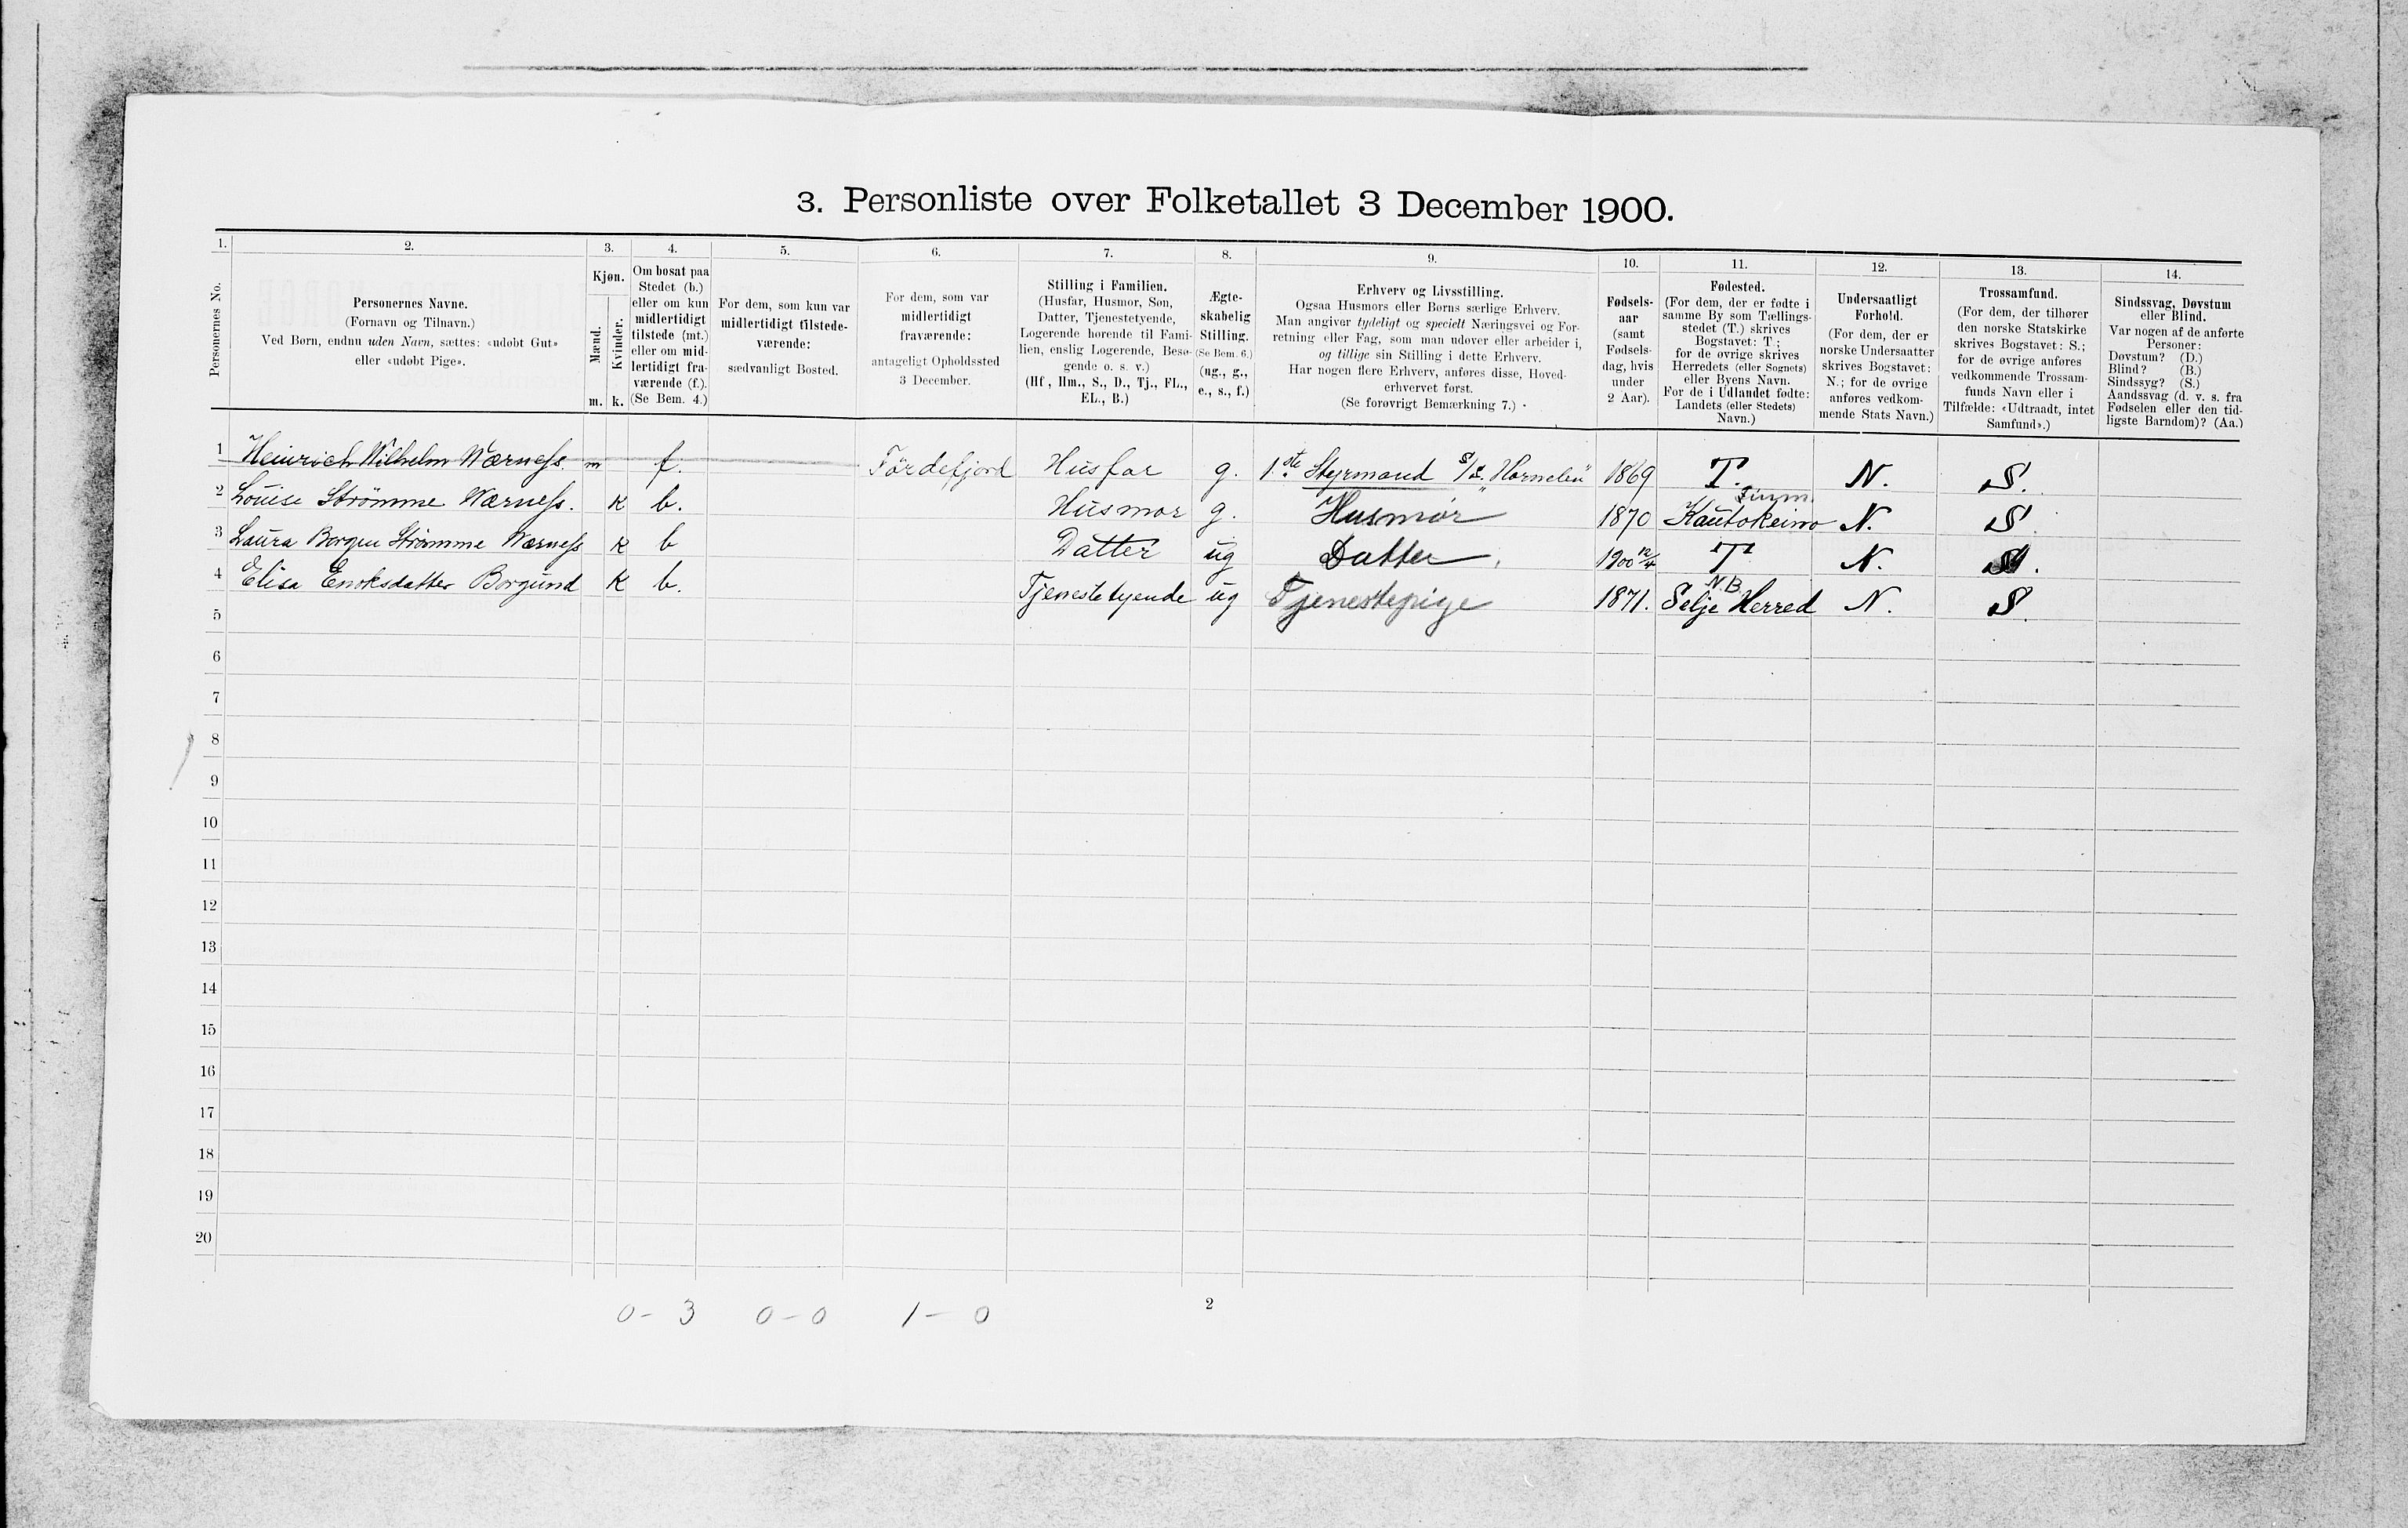 3. Personliste over Folketallet 3 December 1900.
1. 2. 3. 4. 5. 6. 7. 8. 9. 10. 11. 12. 13. 14.
Personernes No.
Personernes Navne.
(Fornavn og Tilnavn.)
Ved Børn, endnu uden Navn, sættes: «udøbt Gut»
eller «udøbt Pige».
Kjøn.
Mænd.
Kvinder.
m. k.
Om bosat paa
Stedet (b.)
eller om kun
midlertidigt
tilstede (mt.)
eller om mid-
lertidigt fra-
værende (f.).
(Se Bem. 4.)
For dem, som kun var
midlertidigt tilstede-
værende:
sædvanligt Bosted.
For dem, som var
midlertidigt
fraværende:
antageligt Opholdssted
3 December.
Stilling i Familien.
(Husfar, Husmor, Søn,
Datter, Tjenestetyende,
Logerende hørende til Fami-
lien, enslig Logerende, Besø-
gende o. s. v.)
(Hf., Hm., S., D., Tj., FL.,
EL., B.)
Ægte-
skabelig
Stilling.
(Se Bem. 6.)
(ug., g.,
e., s., f.)
Erhverv og Livsstilling.
Ogsaa Husmors eller Børns særlige Erhverv.
Man angiver tydeligt og specielt Næringsvei og For-
retning eller Fag, som man udøver eller arbeider i,
og tillige sin Stilling i dette Erhverv.
Har nogen flere Erhverv, anføres disse, Hoved-
erhvervet først.
(Se forøvrigt Bemærkning 7.)
Fødsels-
aar
(samt
Fødsels-
dag, hvis
under
2 Aar).
Fødested.
(For dem, der er fødte i
samme By som Tællings-
stedet (T.) skrives
Bogstavet: T.;
for de øvrige skrives
Herredets (eller Sognets)
eller Byens Navn.
For de i Udlandet fødte:
Landets (eller Stedets)
Navn.)
Undersaatligt
Forhold.
(For dem, der er
norske Undersaatter
skrives Bogstavet:
N.; for de øvrige
anføres vedkom-
mende Stats Navn.)
Trossamfund.
(For dem, der tilhører
den norske Statskirke
skrives Bogstavet: S.;
for de øvrige anføres
vedkommende Trossam-
funds Navn eller i
Tilfælde: «Udtraadt, intet
Samfund».)
Sindssvag, Døvstum
eller Blind.
Var nogen af de anførte
Personer:
Døvstum? (D.)
Blind? (B.)
Sindssyg? (S.)
Aandssvag (d. v. s. fra
Fødselen eller den tid-
ligste Barndom)? (Aa.)
1 Heinrich Wilhelm Wærness. m f. Fördefjord Husfar g. 1.ste Styrmand S/S. "Hornelen" 1869 T. N. S.
2 Louise Strömme Wærness. k b. Husmor g. Husmor 1870 Kautokeino Finm. N. S.
3 Laura Borgen Strömme Wærness k b Datter ug Datter. 1900 12/4 T N. S.
4 Elisa Enoksdatter Borgund k b. Tjenestetyende ug Tjenestepige 1871. Selje Herred NB N. S.
5
6
7
8
9
10
11
12
13
14
15
16
17
18
19
20
0 - 3 0 - 0 1 - 0
2